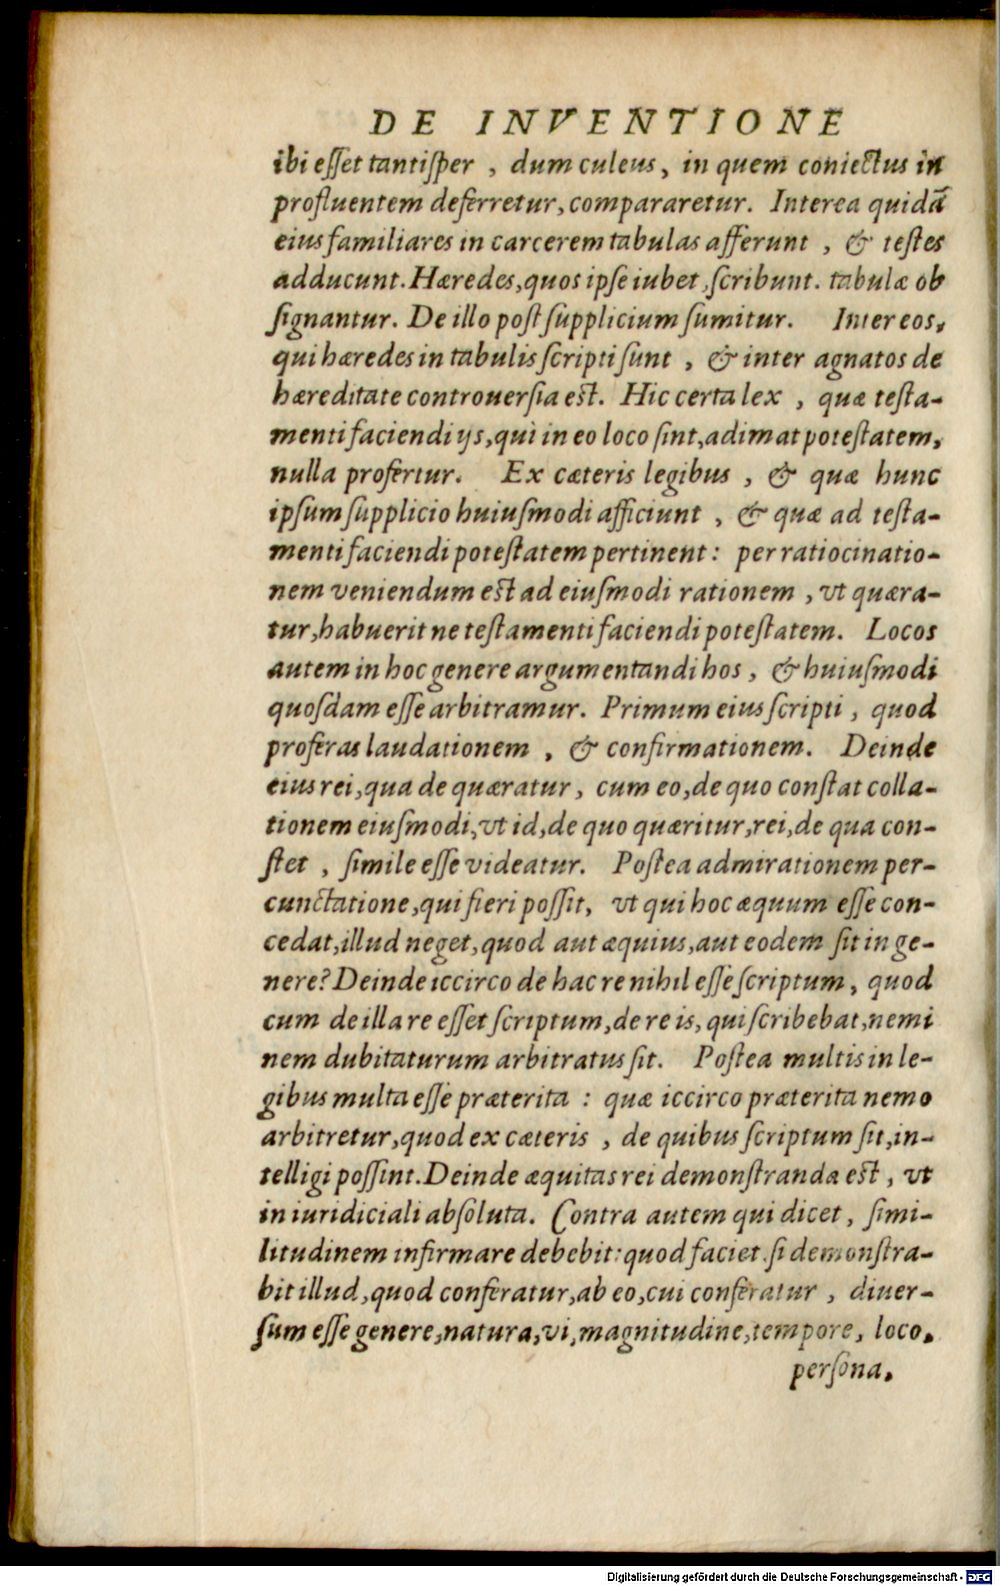 DE INVENTIONE
ibi esset tantisper , dum culeus, in quem coniectus in
profluentem deferretur, compararetur. Interea quidã
eius familiares in carcerem tabulas afferunt , & testes
adducunt. Hæredes, quos ipse iubet, scribunt. tabulæ ob
signantur. De illo post supplicium sumitur. Inter eos,
qui hæredes in tabulis scripti sunt , & inter agnatos de
hæreditate controuersia est. Hic certa lex , quæ testa-
menti faciendi ijs, qui in eo loco sint, adimat potestatem,
nulla profertur. Ex cæteris legibus , & quæ hunc
ipsum supplicio huiusmodi afficiunt , & quæ ad testa-
menti faciendi potestatem pertinent: per ratiocinatio-
nem veniendum est ad eiusmodi rationem , vt quæra-
tur, habuerit ne testamenti faciendi potestatem. Locos
autem in hoc genere argumentandi hos , & huiusmodi
quosdam esse arbitramur. Primum eius scripti , quod
proferas laudationem , & confirmationem. Deinde
eius rei, qua de quæratur, cum eo, de quo constat colla-
tionem eiusmodi, vt id, de quo quæritur, rei, de qua con-
stet , simile esse videatur. Postea admirationem per-
cunctatione, qui fieri possit, vt qui hoc æquum esse con-
cedat, illud neget, quod aut æquius, aut eodem sit in ge-
nere? Deinde iccirco de hac re nihil esse scriptum, quod
cum de illa re esset scriptum, de re is, qui scribebat, nemi
nem dubitaturum arbitratus sit. Postea multis in le-
gibus multa esse præterita : quæ iccirco præterita nemo
arbitretur, quod ex cæteris , de quibus scriptum sit, in-
telligi possint. Deinde æquitas rei demonstranda est, vt
in iuridiciali absoluta. Contra autem qui dicet, simi-
litudinem infirmare debebit: quod faciet. si demonstra-
bit illud, quod conferatur, ab eo, cui conferatur , diuer-
sum esse genere, natura, vi, magnitudine, tempore, loco,
persona,
Digitalisierung gefördert durch die Deutsche Forschungsgemeinschaft - DFG